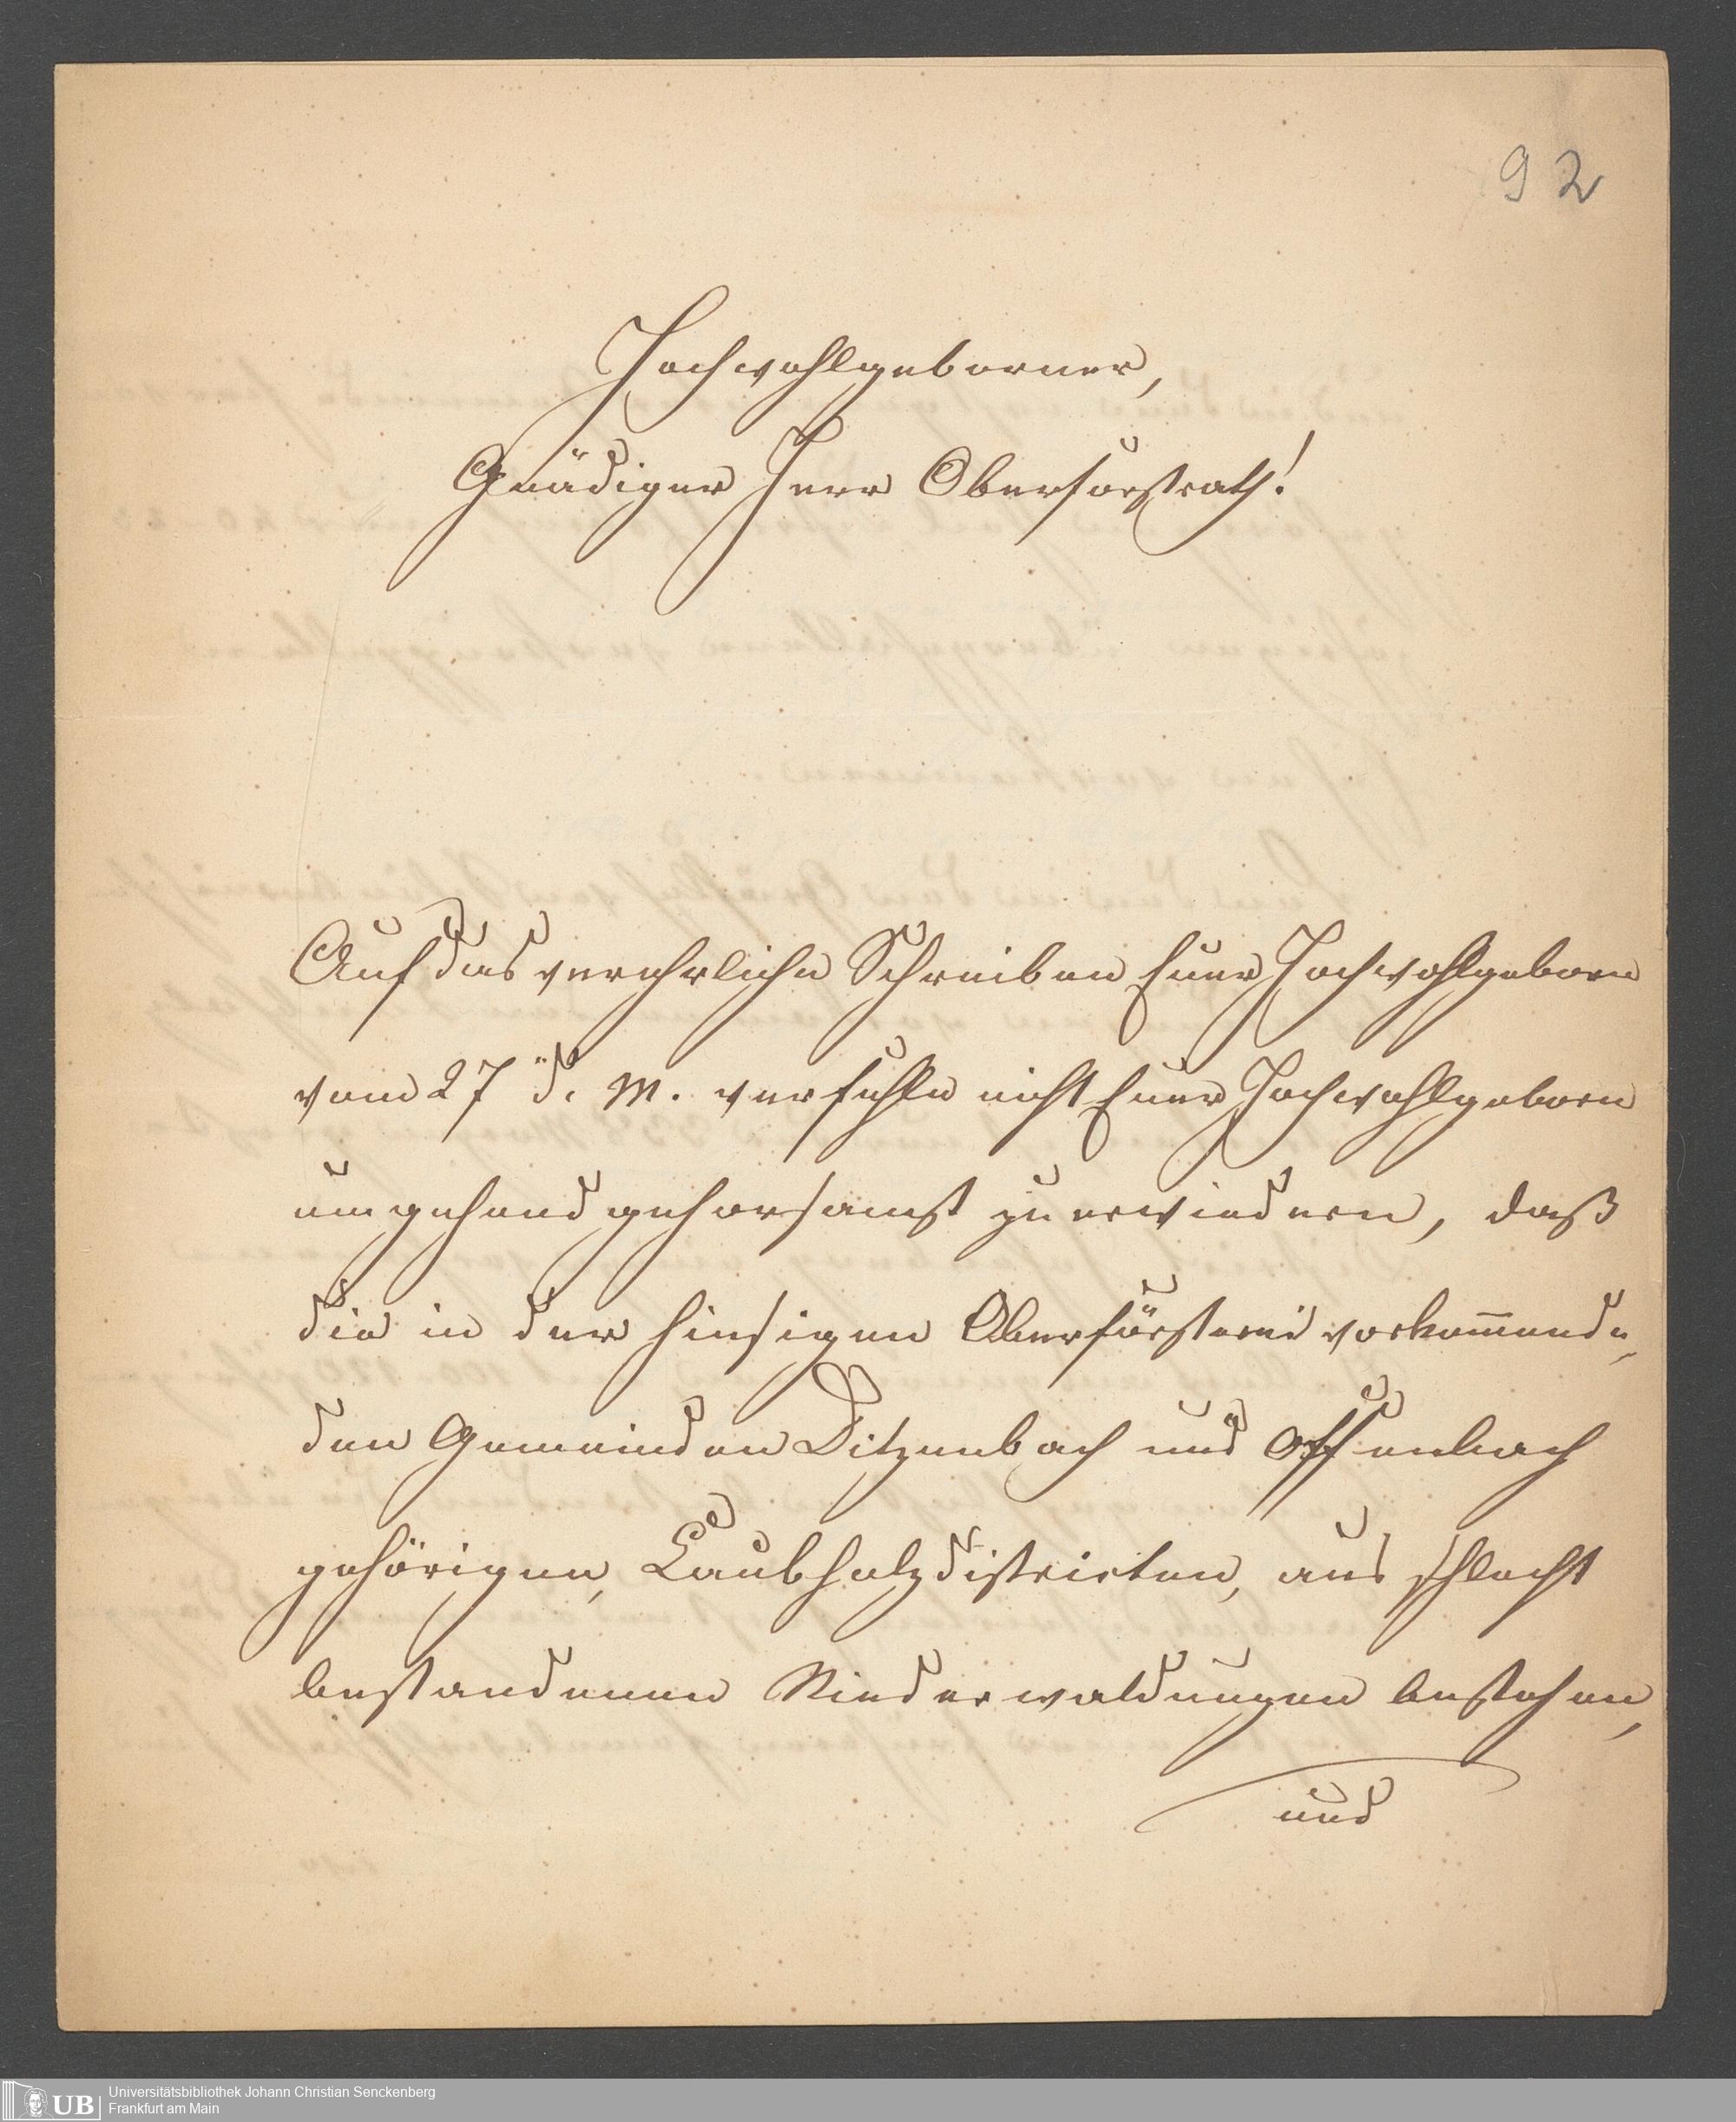 92
Hochwohlgeborner,
Gnädiger Herr Oberforstrath!
Auf das verehrliche Schreiben Euer Hochwohlgeborn
vom 27" d. M. verfehle nicht Euer Hochwohlgeborn
umgehend gehorsamst zu erwiedern, daß
die in der hiesigen Oberförsterei vorkommende,
den Gemeinden Ditzenbach und Offenbach
gehörigen, Laubholzdistricten, aus schlecht
bestandenen Niederwaldungen bestehen,
und
UB
Universitätsbibliothek Johann Christian Senckenberg
Frankfurt am Main